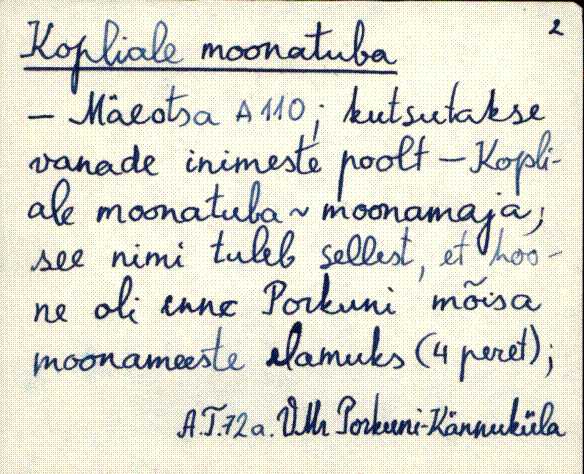 2
Kopliale moonatuba
– Mäeotsa A 110; kutsutakse
vanade inimeste poolt – Kopli-
ale moonatuba ~ moonamaja;
see nimi tuleb sellest, et hoo-
ne oli enne Porkuni mõisa
moonameeste elamuks (4 peret);
A.T. 72 a. VMr Porkuni-Kännuküla